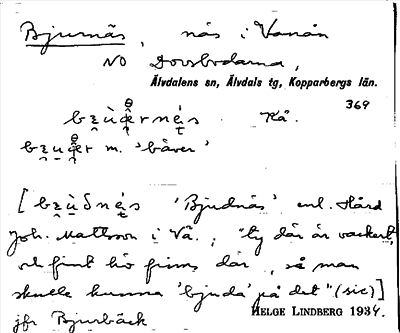 Bjurnäs, näs i Vanån
NO Dovsbodarna,
Älvdalens sn, Älvdals tg, Kopparbergs län.
369
Kå.
m. 'bäver'
[ 'Bjudnäs' enl. Hård
Joh. Mattsson i Vå.; "ty där är vackert,
och fint hö finns där, så man
skulle kunna 'bjuda' på det" (sic)]
HELGE LINDBERG 1934.
jfr Bjurbäck